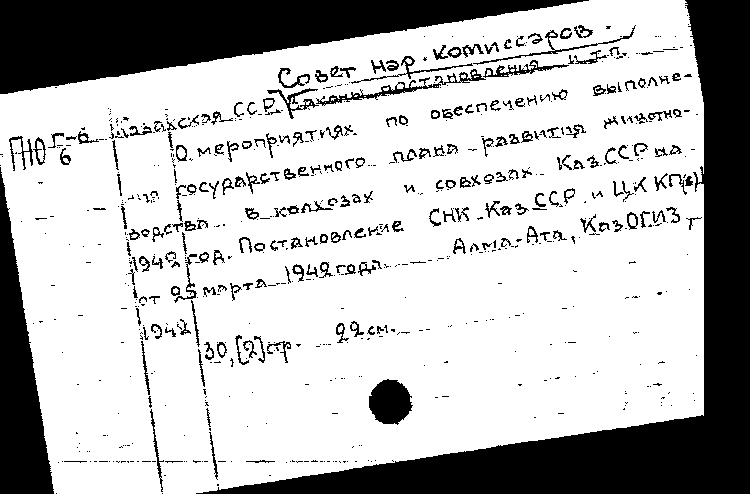 Совет нар. комиссаров.
П10 Г-6
6
Казахская ССР. Законы, постановления и т.п.
О мероприятиях по обеспечению выполне-
ния государственного плана развития животно-
водства в колхозах и совхозах Каз.ССР на
1942 год. Постановление СНК Каз.ССР и ЦК КП(б)
от 25 марта 1942 года Алма-Ата, КазОГИЗ,
1942
30,[2]стр. 22 см.